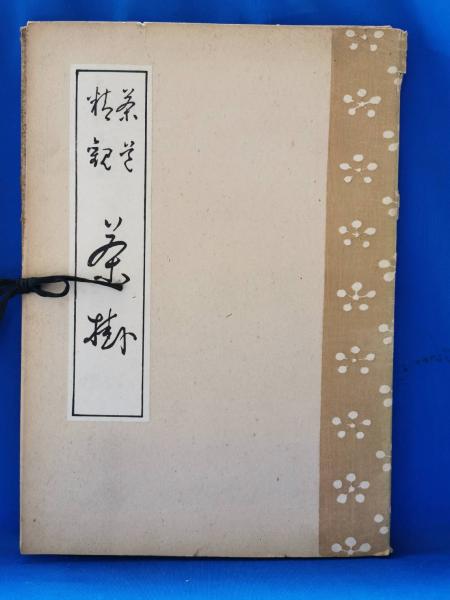 茶道
精観
茶掛